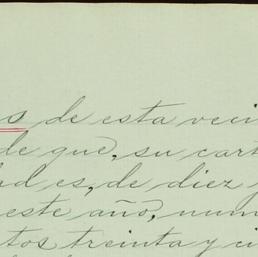 s de esta veci
de que, su cart
ad es, de diez y
este año, num
tos treinta y ci